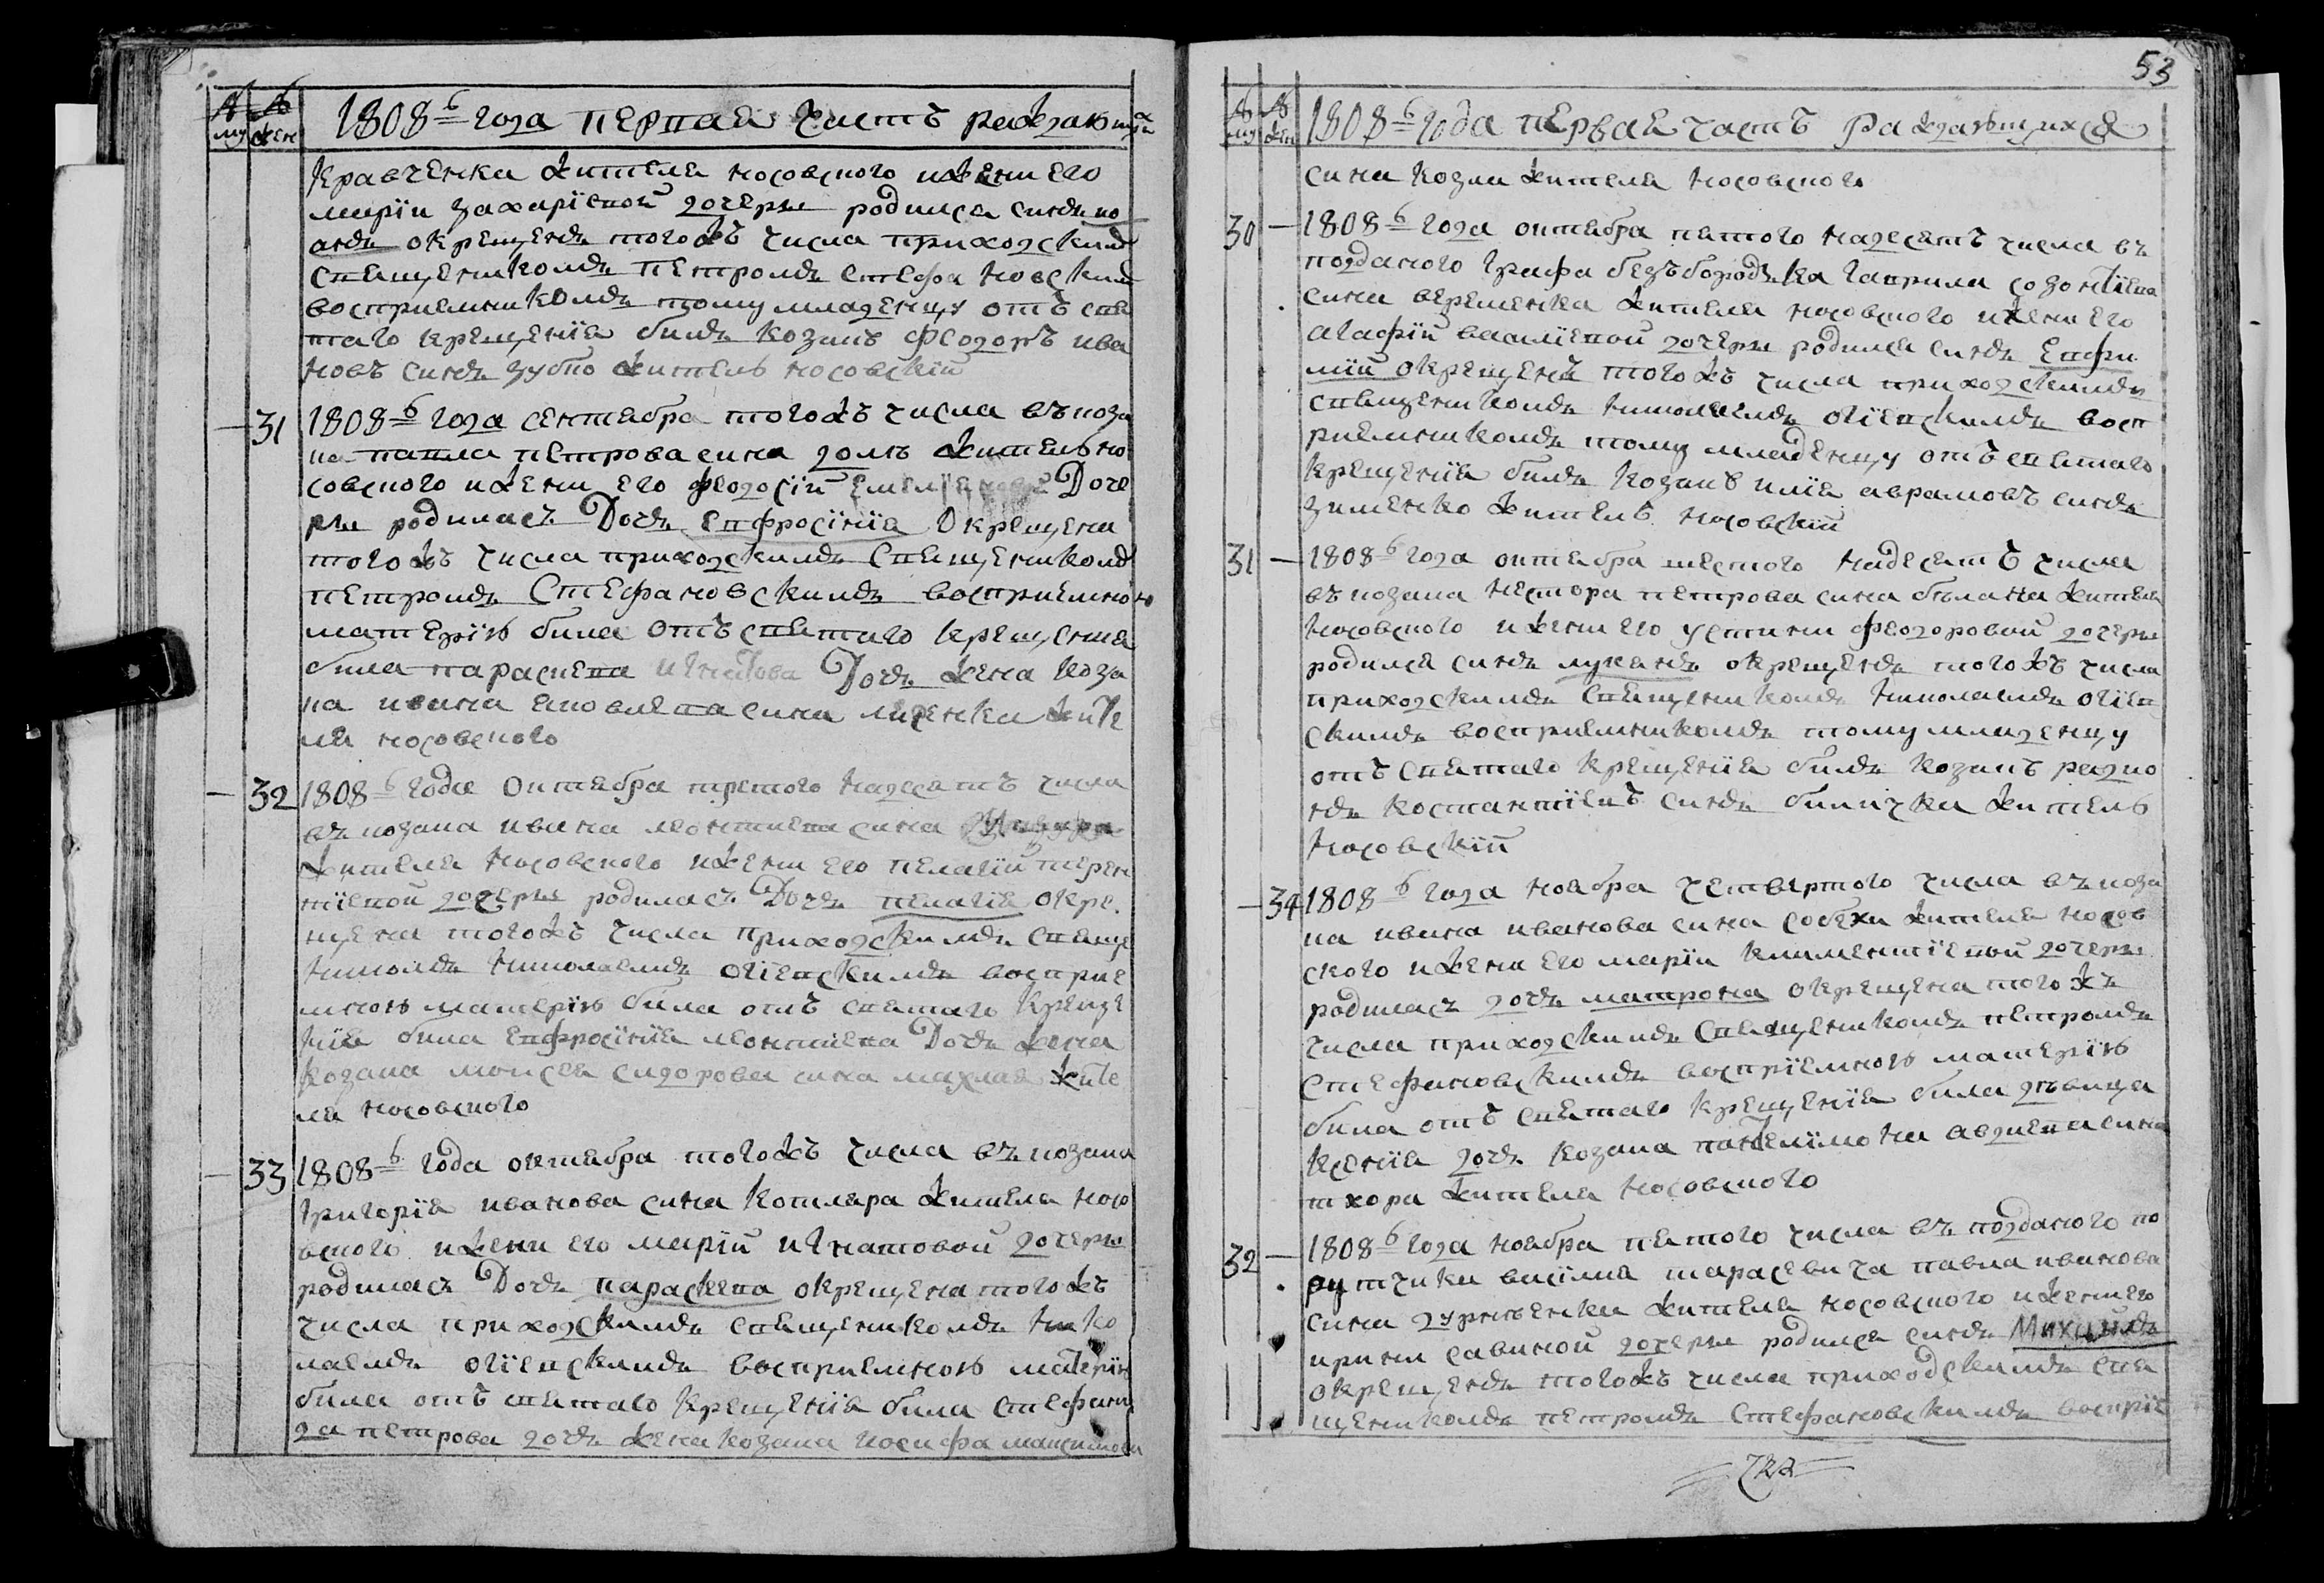 № му № жен 1808 б года первая часть раждающихся
Кравченка жителя носовского и жени его
марїи захарїевой дочеры родился синъ ио
анъ окрещенъ тогожъ числа приходским
священикомъ петромъ стефановским
восприемникомъ тому младенцу отъ свя
таго крещенїя билъ козакъ феодоръ ива
новъ синъ зубко житель носовскїй
31 1808 б года сентября тогожъ числа въ коза
ка павла петрова сина жителя но
совского и жени его феодосїй доче
ры родилась дочъ епфросїнїя окрещена
тогожъ числа приходскимъ священикомъ
петромъ стефановскимъ восприемною
матерїю била отъ святаго крещения
била параскева игнатова дочъ жена коза
ка ивана яковлева сина жите
ля носовского
32 1808 б года октября третого надесятъ числа
въ козака ивана леонтиева сина
жителя носовского и жени его пелагїй терен
тїевой дочеры родилась дочъ пелагїя окре
щена тогожъ числа приходскимъ свяще
никомъ николаемъ огїевскимъ восприе
мною матерїю била отъ святаго креще
нїя била епфросїнїя леонтиева дочъ жена
козака моисея сидорова сина махлая жите
ля носовского
33 1808 б года октября тогожъ числа въ козака
григорїя иванова сина котляра жителя носо
вского и жени его марїй игнатовой дочеры
родилась дочъ параскева окрещена тогожъ
числа приходскимъ священикомъ нико
лаемъ огїевскимъ восприемною матерїю
била отъ святаго крещенїя била стефани
да петрова дочъ жена козака иосифа максимова
53
№ му № жен 1808 б года первая часть раждающихся
сина козла жителя носовского
30 1808 б года октября пятого надесятъ числа въ
подданого графа безъбородъка гаврила созонтїева
сина веременка жителя носовского и жени его
агафїй василїевой дочеры родился синъ епфи
мїй окрещенъ тогожъ числа приходскимъ
священикомъ николаемъ огїевскимъ восп
риемникомъ тому младенцу отъ святаго
крещенїя билъ козакъ илїя аврамовъ синъ
зименко житель носовскїй
31 1808 б года октября шестого надесятъ числа
въ козака нестора петрова сина жителя
носовского и жени его устини феодоровой дочеры
родился синъ лукянъ окрещенъ тогожъ числа
приходскимъ священикомъ николаемъ огїев
скимъ восприемникомъ тому младенцу
отъ святаго крещенїя билъ козакъ радио
нъ костантїевъ синъ житель
носовскїй
34 1808 б года ноября четвертого числа въ коза
ка ивана иванова сина собеки жителя носов
ского и жени его марїи климентїевой дочеры
родилась дочъ матрона окрещена тогожъ
числа приходскимъ священикомъ петромъ
стефановскимъ воспрїемною матерїю
била отъ святаго крещенїя била дѣвица
ксенїя дочъ козака пантелїмона авдиева сина
тхора жителя носовского
32 1808 б года ноября пятого числа въ подданого по
рутчика василия тарасевича павла иванова
сина жителя носовского и жени его
ирини савиной дочеры родился синъ Михаилъ
окрещенъ тогожъ числа приходскимъ свя
щеникомъ петромъ стефановскимъ воспрїе